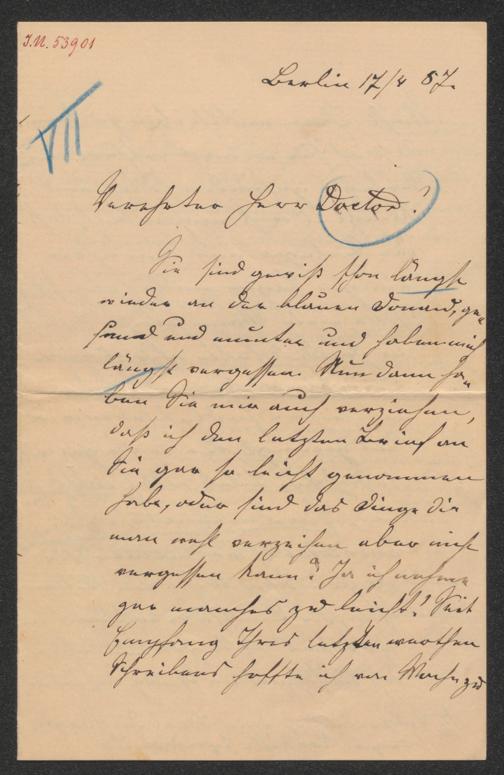 I.N. 53901
Berlin 17/4 87.
VII
Verehrter Herr Doctor!
Sie sind gewiß schon längst
wieder an der blauen Donau, ge-
sund und munter und haben mich
längst vergessen. Nun dann ha-
ben Sie mir auch verziehen,
daß ich den letzten Brief an
Sie gar so leicht genommen
habe, oder sind das Dinge die
man wohl verzeihen aber nicht
vergessen kann? Ja ich nehme
gar manches zu leicht! Seit
Empfang Ihres letzten werthen
Schreibens hoffte ich von Woche zu